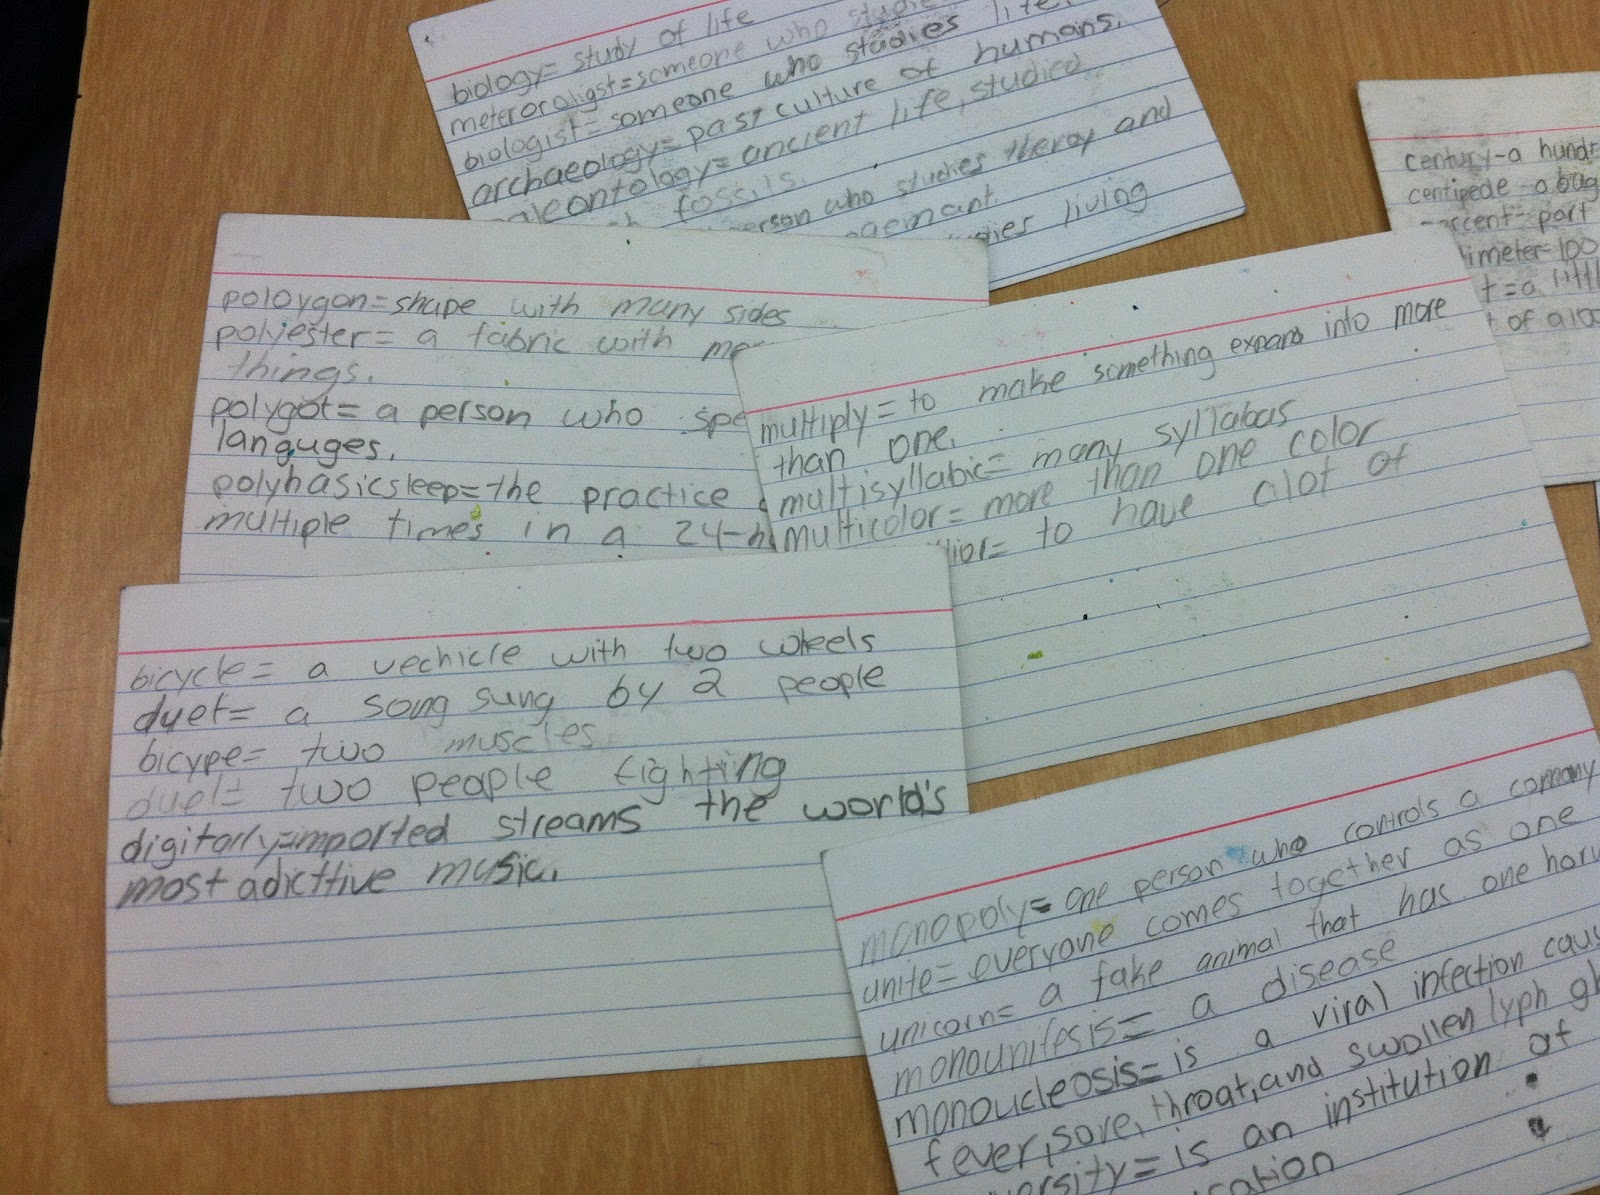 biology= study of life
meteroroligst= someone who studie
biologist= someone who studies life.
archaeology= past culture of humans.
aleontology= ancient life, studied
fossils.
erson who studies theroy and
gemant.
dies living
century-a hundr
centipede-a bug
ercent-part
timeter=100
t=a littl
t of a 100
poloygon=shape with many sides
polyester= a fabric with
things.
polygot= a person who spe
languges.
polyhasicsleep=the practice
multiple times in a 24-h
multiply= to make something expand into more
than one.
multisyllabic= many syllabus
multicolor= more than one color
lior= to have alot of
bicycle= a vechicle with two wheels
duet= a song sung by 2 people
bicype= two muscles
duel= two people fighting
digitally=imported streams the world's
most adicttive music.
monopoly= one person who controls a company
unite= everyone comes together as one
unicorn= a fake animal that has one horn
monounitesis= a disease
monoucleosis= is a viral infection caus
fever, sore, throat, and swollen lyph gl
ersity= is an institution of
cation